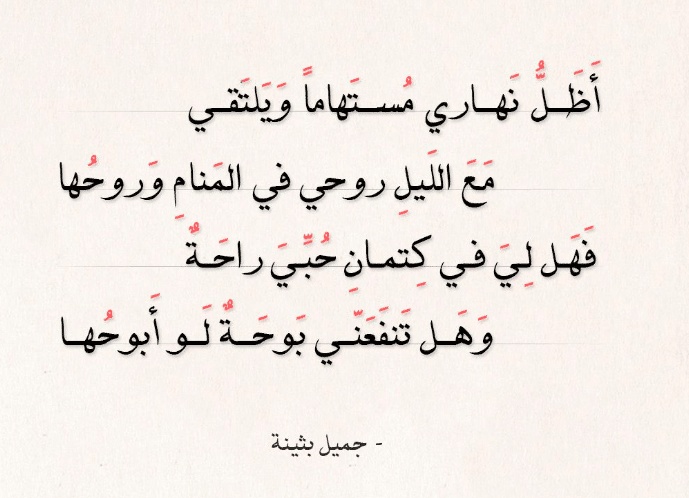 أَظَلُّ نَهاري مُستَهاماً وَيَلتَقي
مَعَ اللَيلِ روحي في المَنامِ وَروحُها
فَهَل لِيَ في كِتمانِ حُبِّيَ راحَةٌ
وَهَل تَنفَعَنّي بَوحَةٌ لَو أَبوحُها
- جميل بثينة